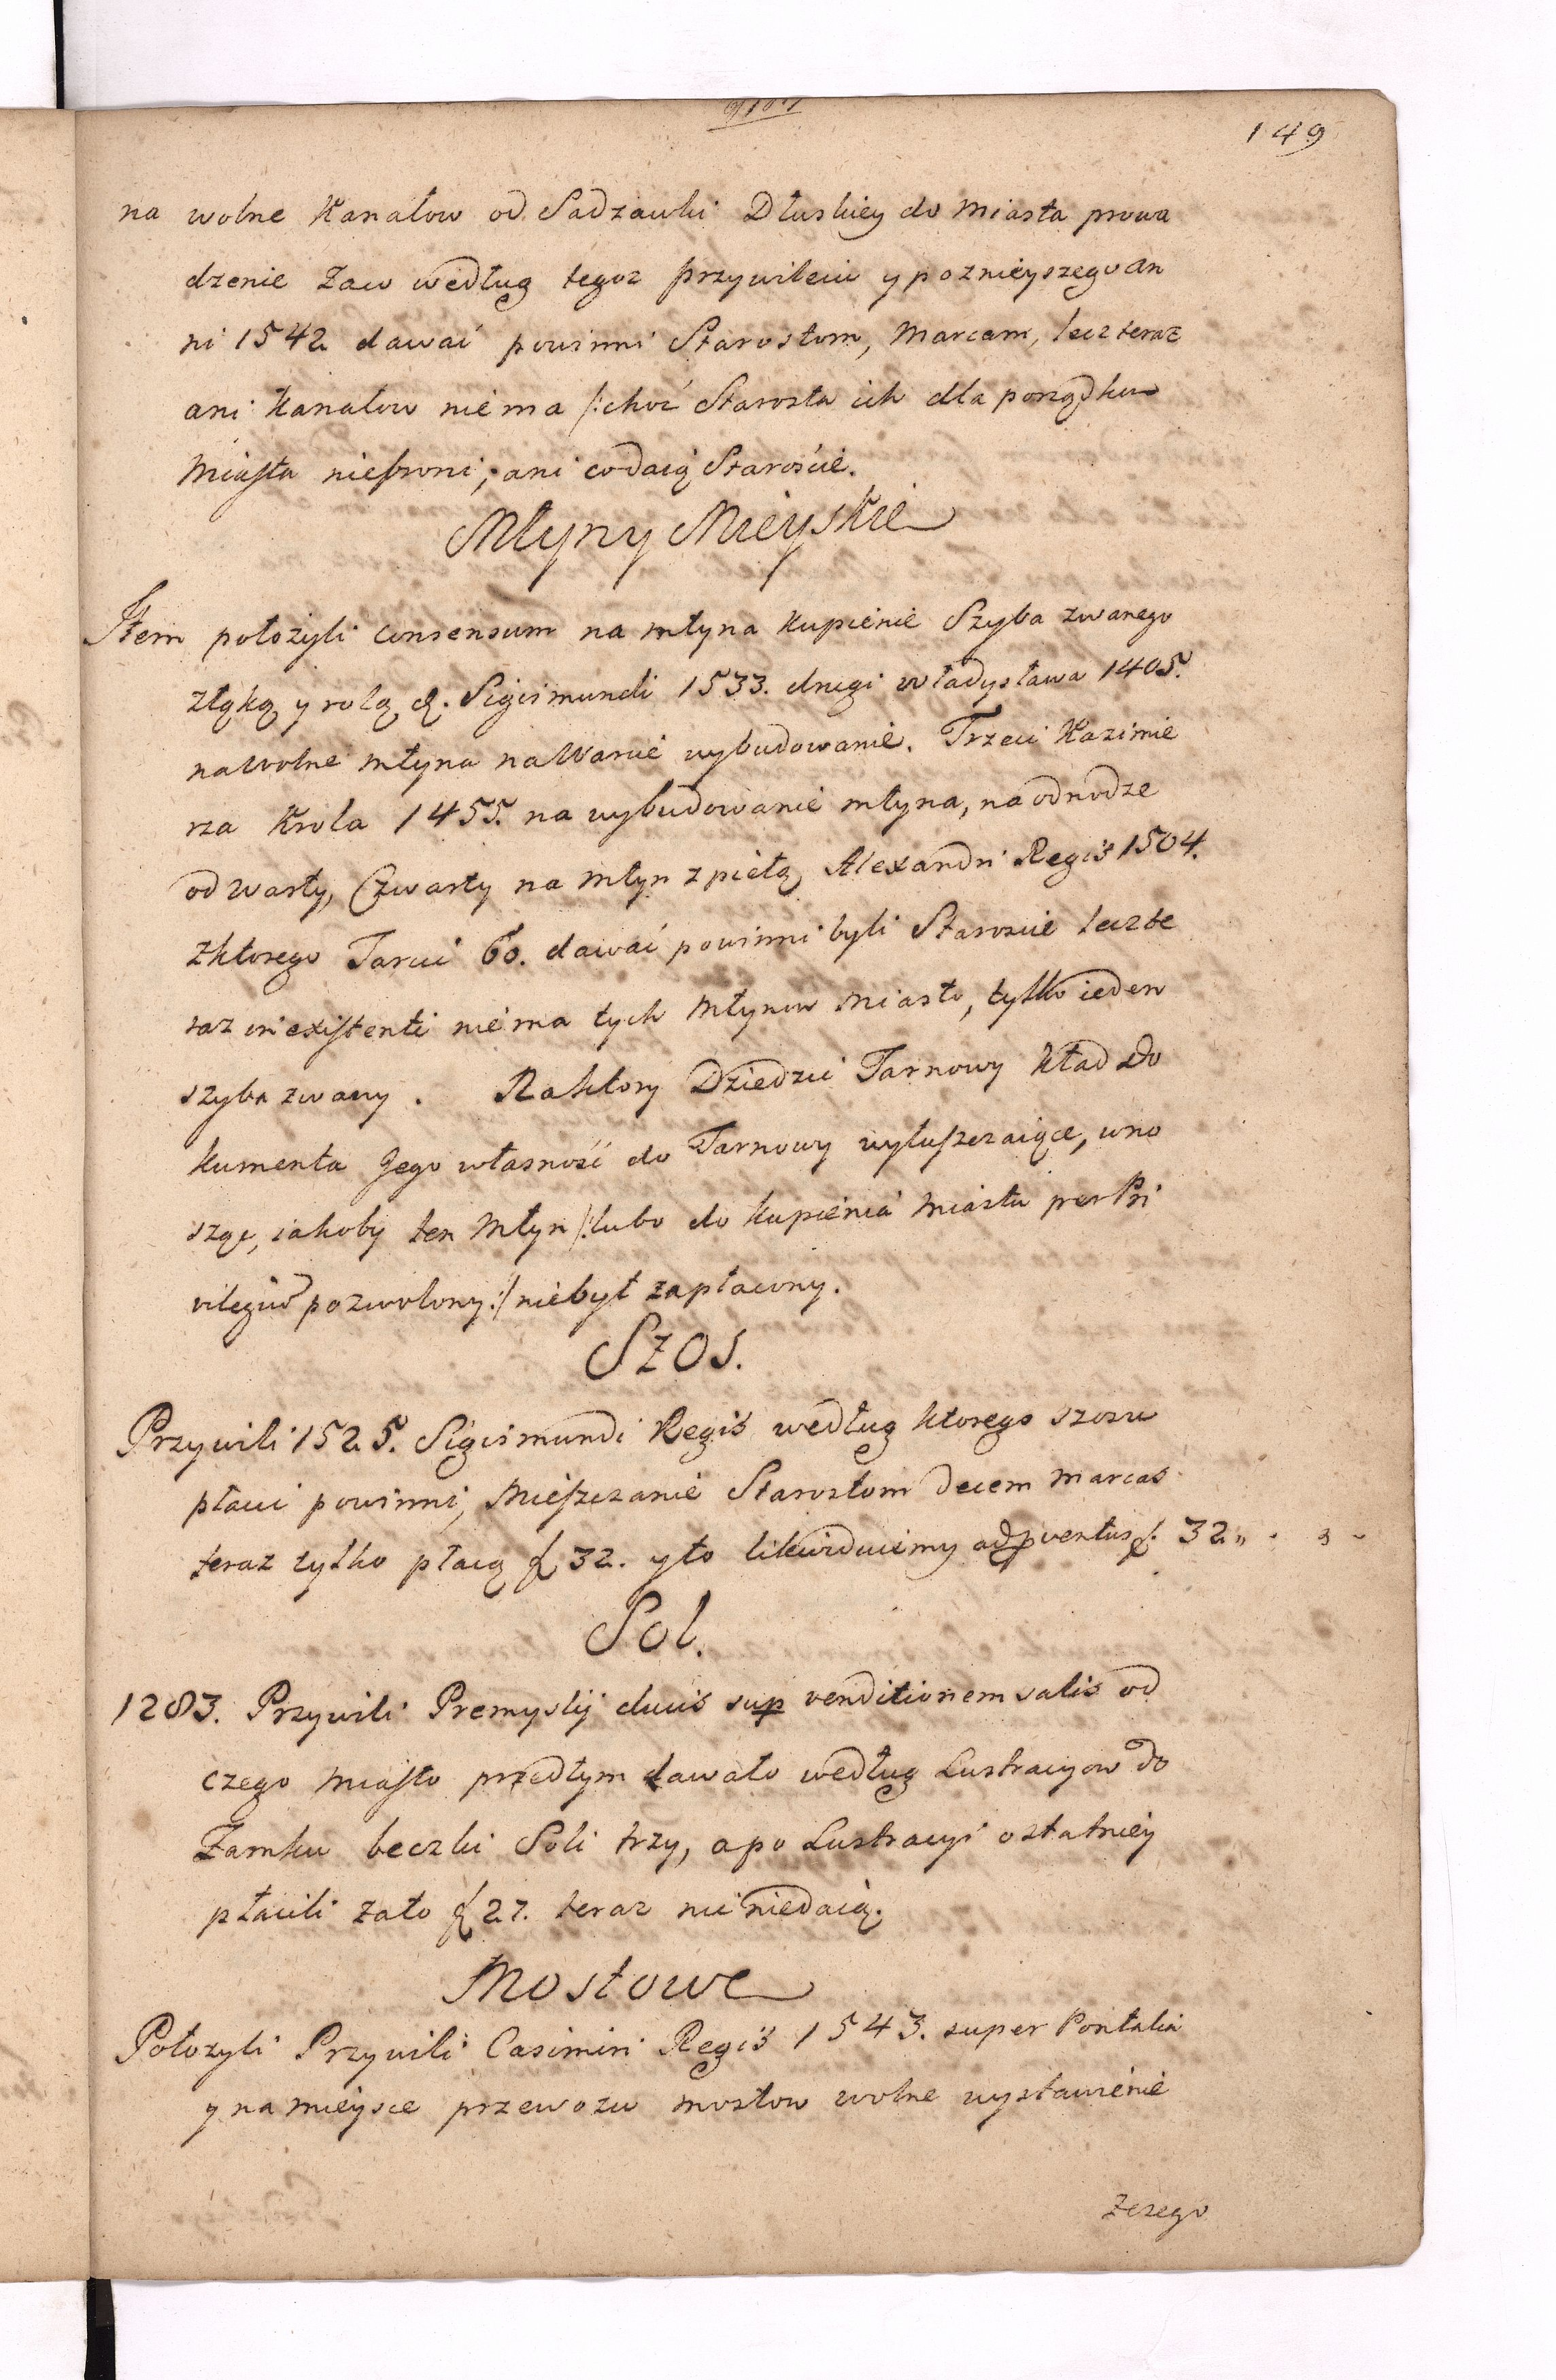 149
na wolne Kanałow od Sadzawki Dłuskiey do miasta prowa
dzenie zaw według tegoz przywileiu y poznieyszego an
ni 1542 dawać powinni Starostom, Marcam, lecz teraz
ani Kanałow nie ma /: choć Starosta ich dla porządku
Miasta niebroni, ani co daią Staroście.
Młyny Mieyskie
Item położyli consensum na młyna kupienie Szyba zwanego
złąką y rolą d. Sigismundi 1533. drugi władysława 1405.
na wolne młyna na Warcie wybudowanie. Trzeci Kazimie
rza Krola 1455. na wybudowanie młyna, na odnodze
od Warty, Czwarty na młyn z piłą Alexandri Regis 1504.
z ktorego Tarcic 60. dawać powinni byli Staroscie lecz te
raz in existenti nie ma tych Młynow Miasto, tylko ieden
szyba zwany. Na ktory Dziedzic Tarnowy kład Do
kumenta Jego własność do Tarnowy wyłuszczaiące, wno
sząc, iakoby ten Młyn /: lubo do kupienia Miastu per Pri
vilegiu pozwolony :/ niebył zapłacony.
Szos.
Przywili 1525. Sigismundi Regis według ktorego szosu
płaci powinni, Mieszczanie Starostom decem marcas
teraz tylko płacą f 32. y to likwiduiemy ad proventus f. 32 „ . 3 -
Sol.
1283. Przywili Premyslij ducis sup venditionem salis od
czego Miasto przedtym dawało według Lustracyow do
Zamku beczki Soli trzy, a po Lustracyi ostatniey
płacili zato f 27. teraz nic niedaią.
Mostowe
Położyli Przywili Casimiri Regis 1543. super Pontalia
y na mieysce przewozu mostow wolne wystawienie
zczego